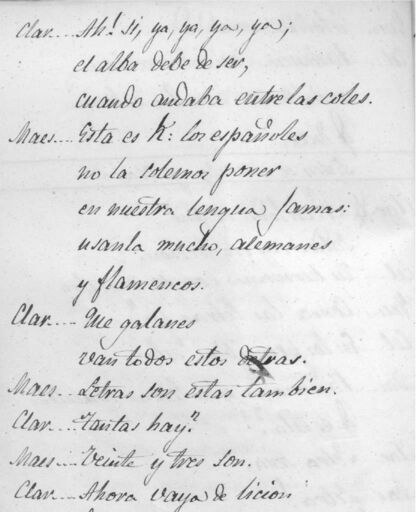 Clar.... Ah! si, ya, ya, ya, ya;
el alba debe de ser,
cuando andaba entre las coles.
Maes.... Esta es K: los españoles
no la solemos poner
en nuestra lengua jamas:
usanla mucho, alemanes
y flamencos.
Clar.... Que galanes
van todos estos detras.
Maes.... Letras son estas tambien.
Clar.... Tantas hay?
Maes.... Veinte y tres son.
Clar.... Ahora vaya de licion